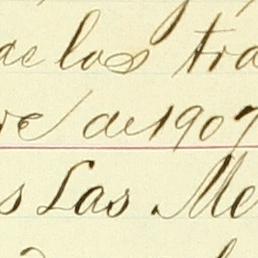 de los tra
re de 1907
s Las Me